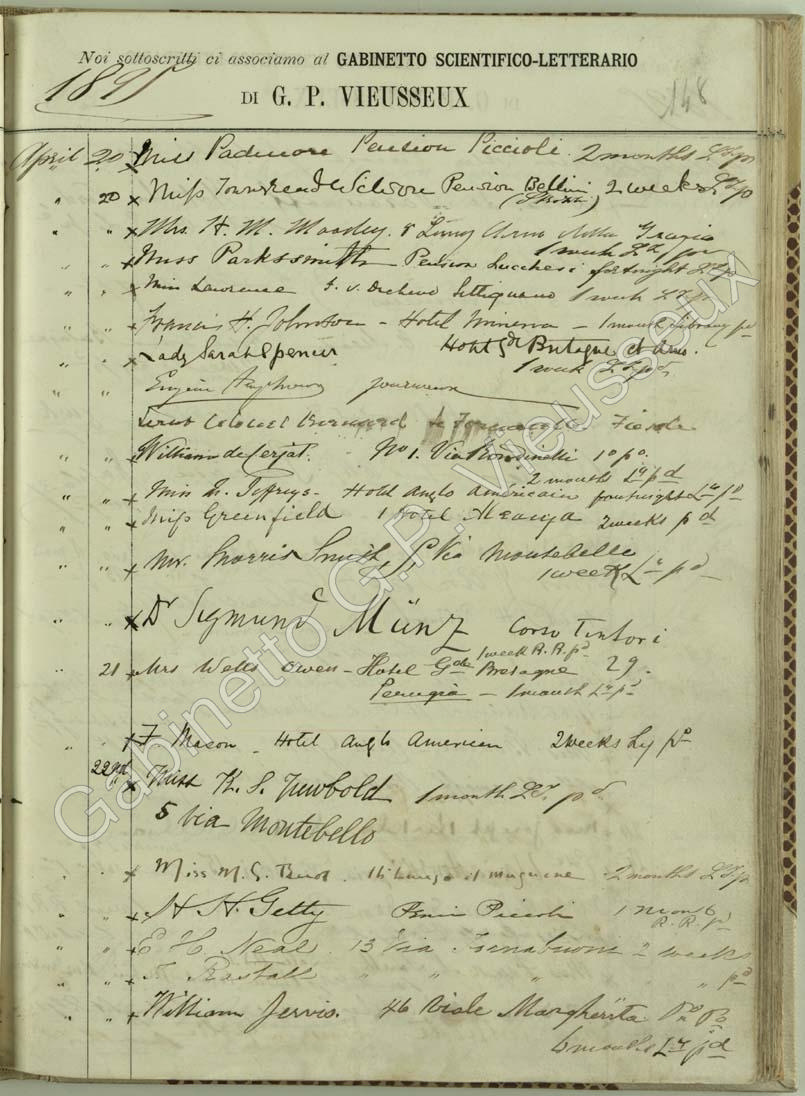 Noi sottoscritti ci associamo al GABINETTO SCIENTIFICO-LETTERARIO
1895
DI G. P. VIEUSSEUX
148
April 20 x Miss Padmore Pension Piccioli 2 months
" 20 x Miss Townshend Wilson Pension Bellini 2 weeks
" " x Mrs. H. M. Moodey. 8 Lung Arno delle Grazie
1 week
" " x Miss Parkssmith Pension Lucchesi fortnight
" " x Miss Lawrence Settignano 1 week
" " x Francis H. Johnston - Hotel Minerva - 1 month Library pd
" " x Lady Sarah Spencer Hotel Gde Bretagne et Arno.
1 week
Eugène
Lieut Colonel Fiesole
" " x William de Cerjat. No 1. Via Rondinelli 1o po.
2 months Ly pd
" " x Miss L. Jeffreys - Hotel Anglo Américain fortnight Ly pd
" " x Miss Greenfield 1 Hotel 2 weeks pd
" " x Mr. Morris Smith, Via Montebello
1 week Ly pd
" " x Dr Sigmund Münz Corso Tintori
1 week R. R. pd
" 21 x Mrs Wells Owen - Hotel Gde Bretagne 29.
Perugia - 1 month Ly pd
" " x F Mason - Hotel Anglo American 2 weeks Ly pd
22nd x Miss K. S. Newbold 1 month pd
5 via Montebello
" " x Miss M. G. 16 Lungo il Mugnone 2 months
" " x H H. Getty Pension Piccioli 1 month
R. R. pd
" " x E H Neal 13 Via Tornabuoni 2 weeks
" " x T. Rastall " " " " pd
" " x William Jervis. 46 Viale Margherita Po Po
6 months Ly pd
Gabinetto G.P. Vieusseux